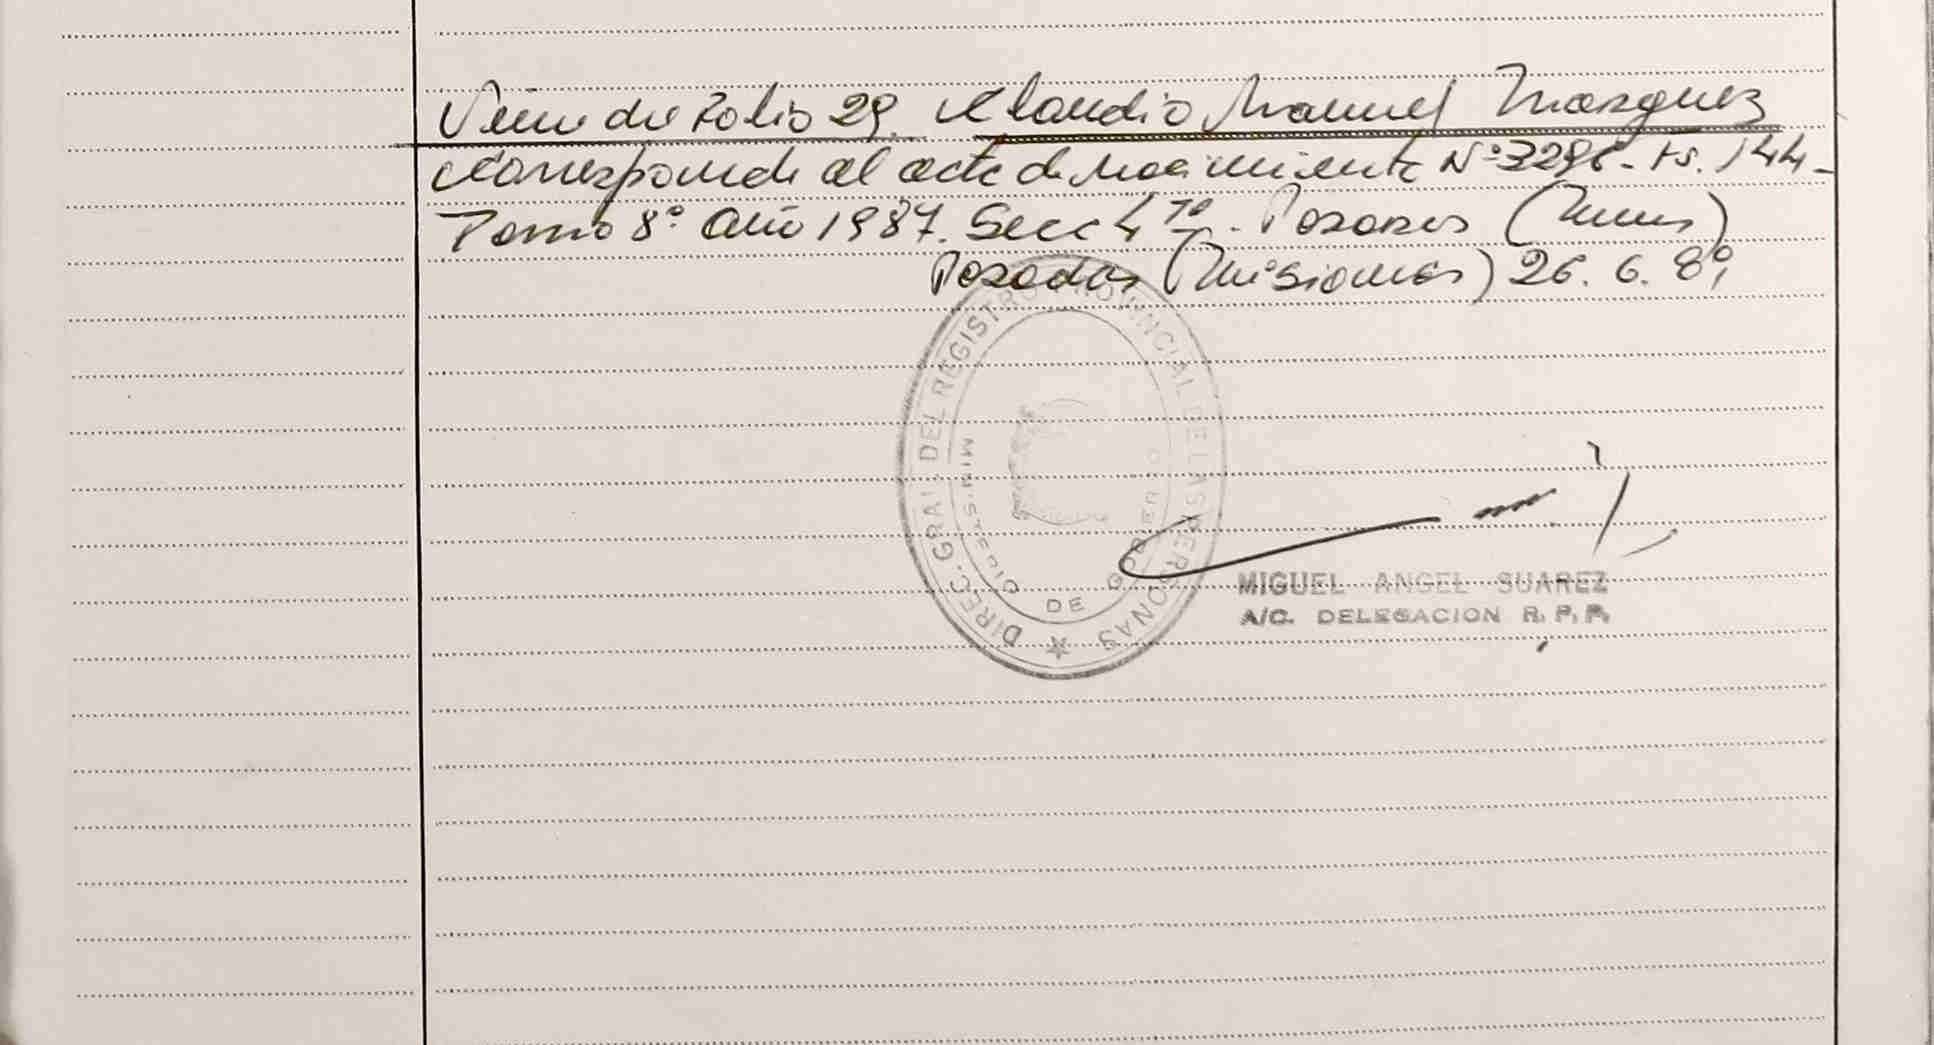 Viene del Folio 29. Claudio Manuel Marquez
Corresponde al acta de Nacimiento Nº 3296 - Fs. 144 -
Tomo 8º Año 1987. Secc 4ta. Posadas (Mnes)
Posadas (Misiones) 26. 6. 89
DIREC. GRAL. DEL REGISTRO PROVINCIAL DE LAS PERSONAS
MINISTERIO DE GOBIERNO
MIGUEL ANGEL SUAREZ
A/C. DELEGACION R. P. P.